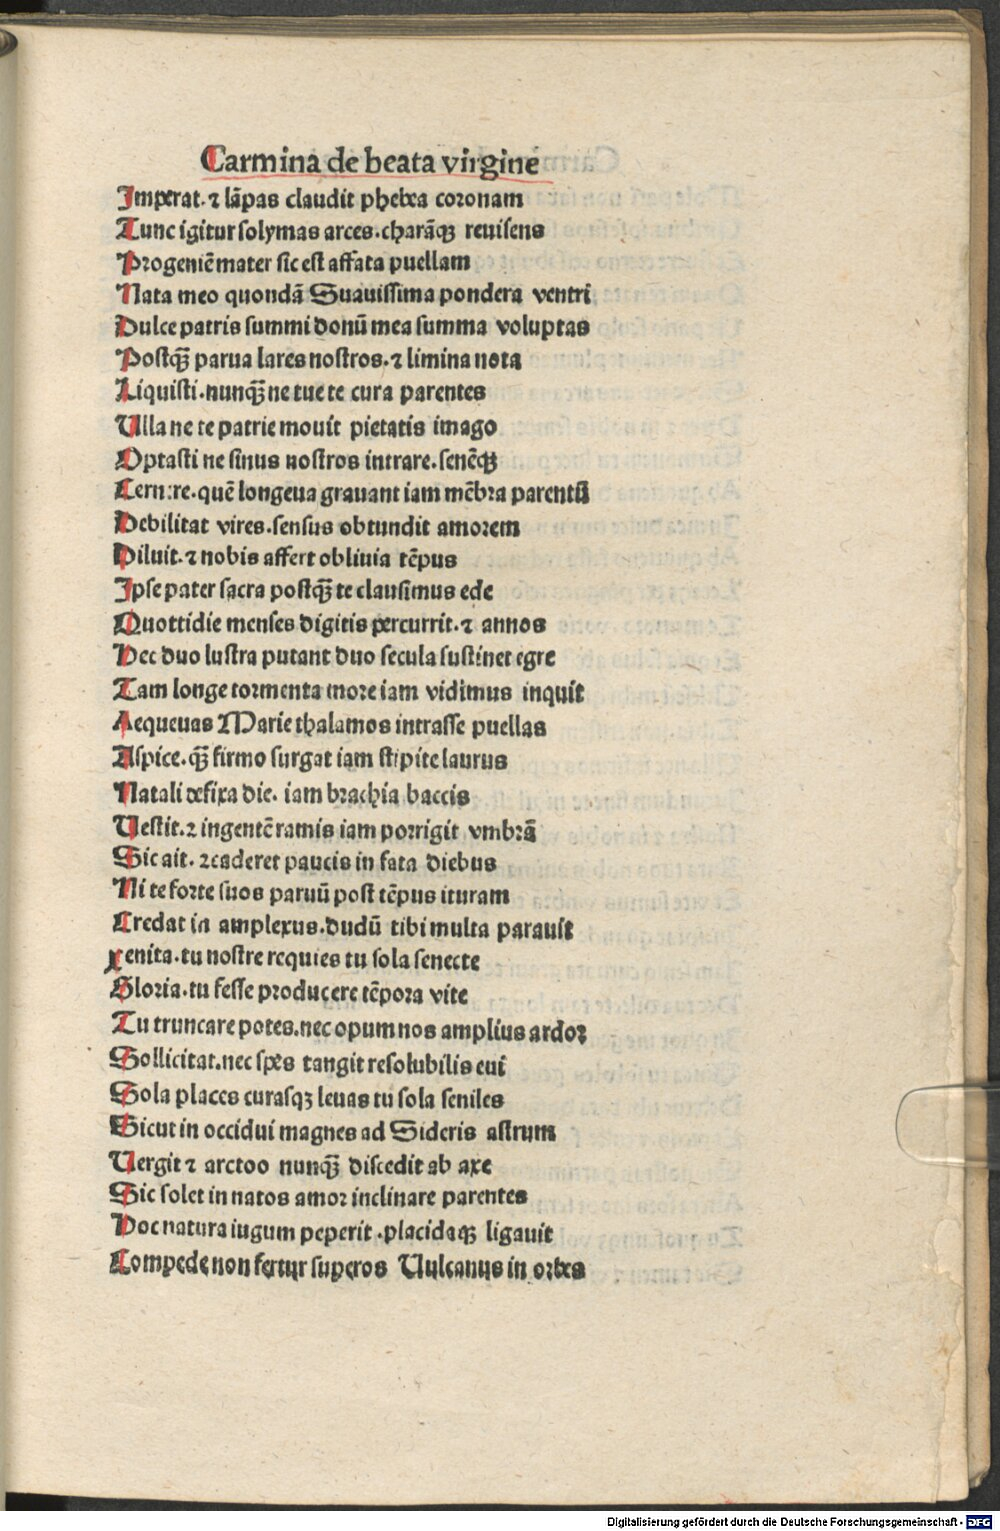 Carmina de beata virgine
Imperat. ⁊ lãpas claudit phebea coronam
Tunc igitur solymas arces. charãqꝫ reuisens
Progeniẽ mater sic est affata puellam
Nata meo quondã Suauissima pondera ventri
Dulce patris summi donũ mea summa voluptas
Postqꝫ̃ parua lares nostros. ⁊ limina nota
Liquisti. nunqꝫ̃ ne tue te cura parentes
Ulla ne te patrie mouit pietatis imago
Optasti ne sinus nostros intrare. senẽqꝫ
Cernere. quẽ longeua grauant iam mẽbra parentũ
Debilitat vires. sensus obtundit amorem
Diluit. ⁊ nobis affert obliuia tẽpus
Ipse pater sacra postqꝫ̃ te clausimus ede
Quottidie menses digitis percurrit. ⁊ annos
Hec duo lustra putant duo secula sustinet egre
Tam longe tormenta more iam vidimus inquit
Aequeuas Marie thalamos intrasse puellas
Aspice. qꝫ̃ firmo surgat iam stipite laurus
Natali defixa die. iam brachia baccis
Uestit. ⁊ ingentẽ ramis iam porrigit vmbrã
Sic ait. ⁊ caderet paucis in fata diebus
Ni te forte suos paruũ post tẽpus ituram
Credat in amplexus. dudũ tibi multa parauit
xenita. tu nostre requies tu sola senecte
Gloria. tu fesse producere tẽpora vite
Tu truncare potes. nec opum nos amplius ardor
Sollicitat. nec spes tangit resolubilis eui
Sola places curasqꝫ leuas tu sola seniles
Sicut in occidui magnes ad Sideris astrum
Uergit ⁊ arctoo nunqꝫ̃ discedit ab axe
Sic solet in natos amor inclinare parentes
Hoc natura iugum peperit. placidaqꝫ ligauit
Compede non fertur superos Vulcanus in orbes
Digitalisierung gefördert durch die Deutsche Forschungsgemeinschaft - DFG